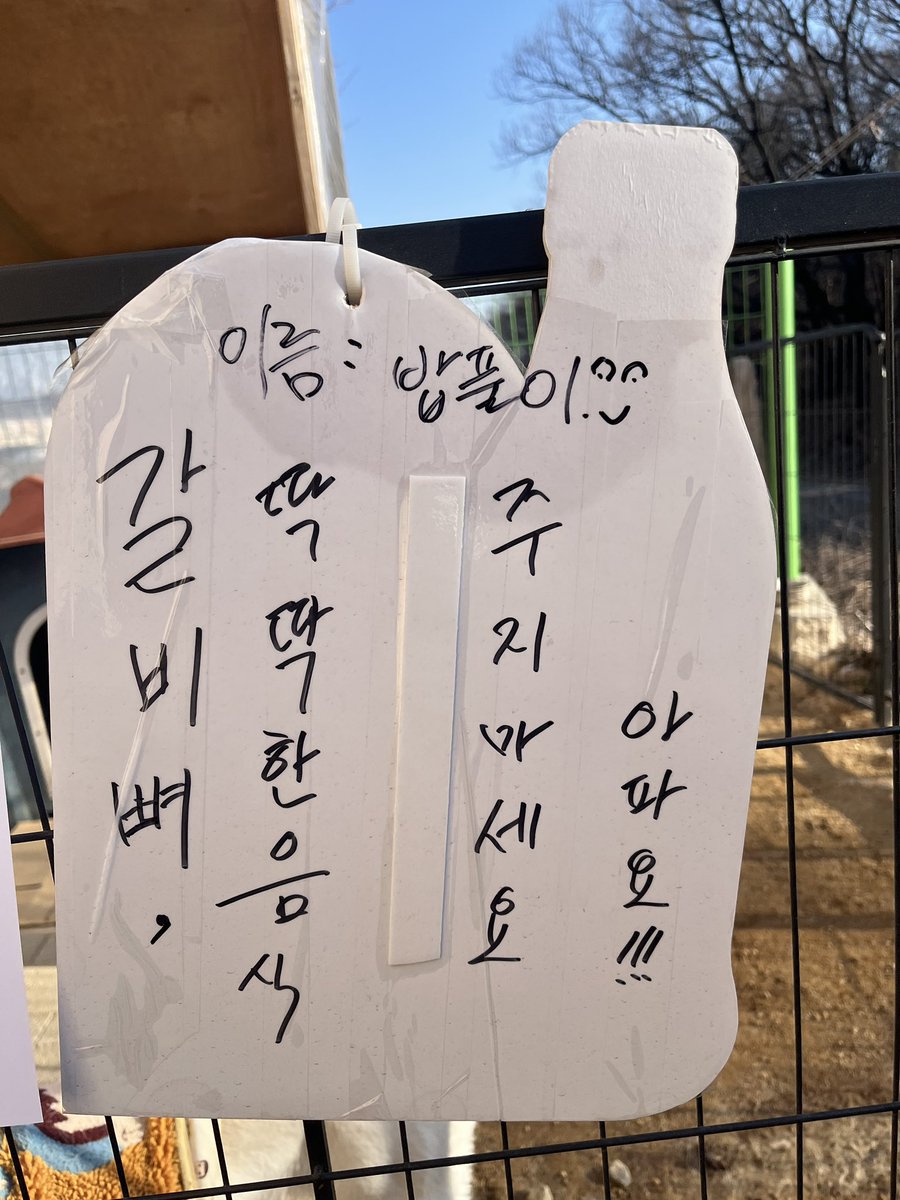 이름: 밥풀이
갈비뼈,
딱딱한음식
주지마세요
아파요!!!